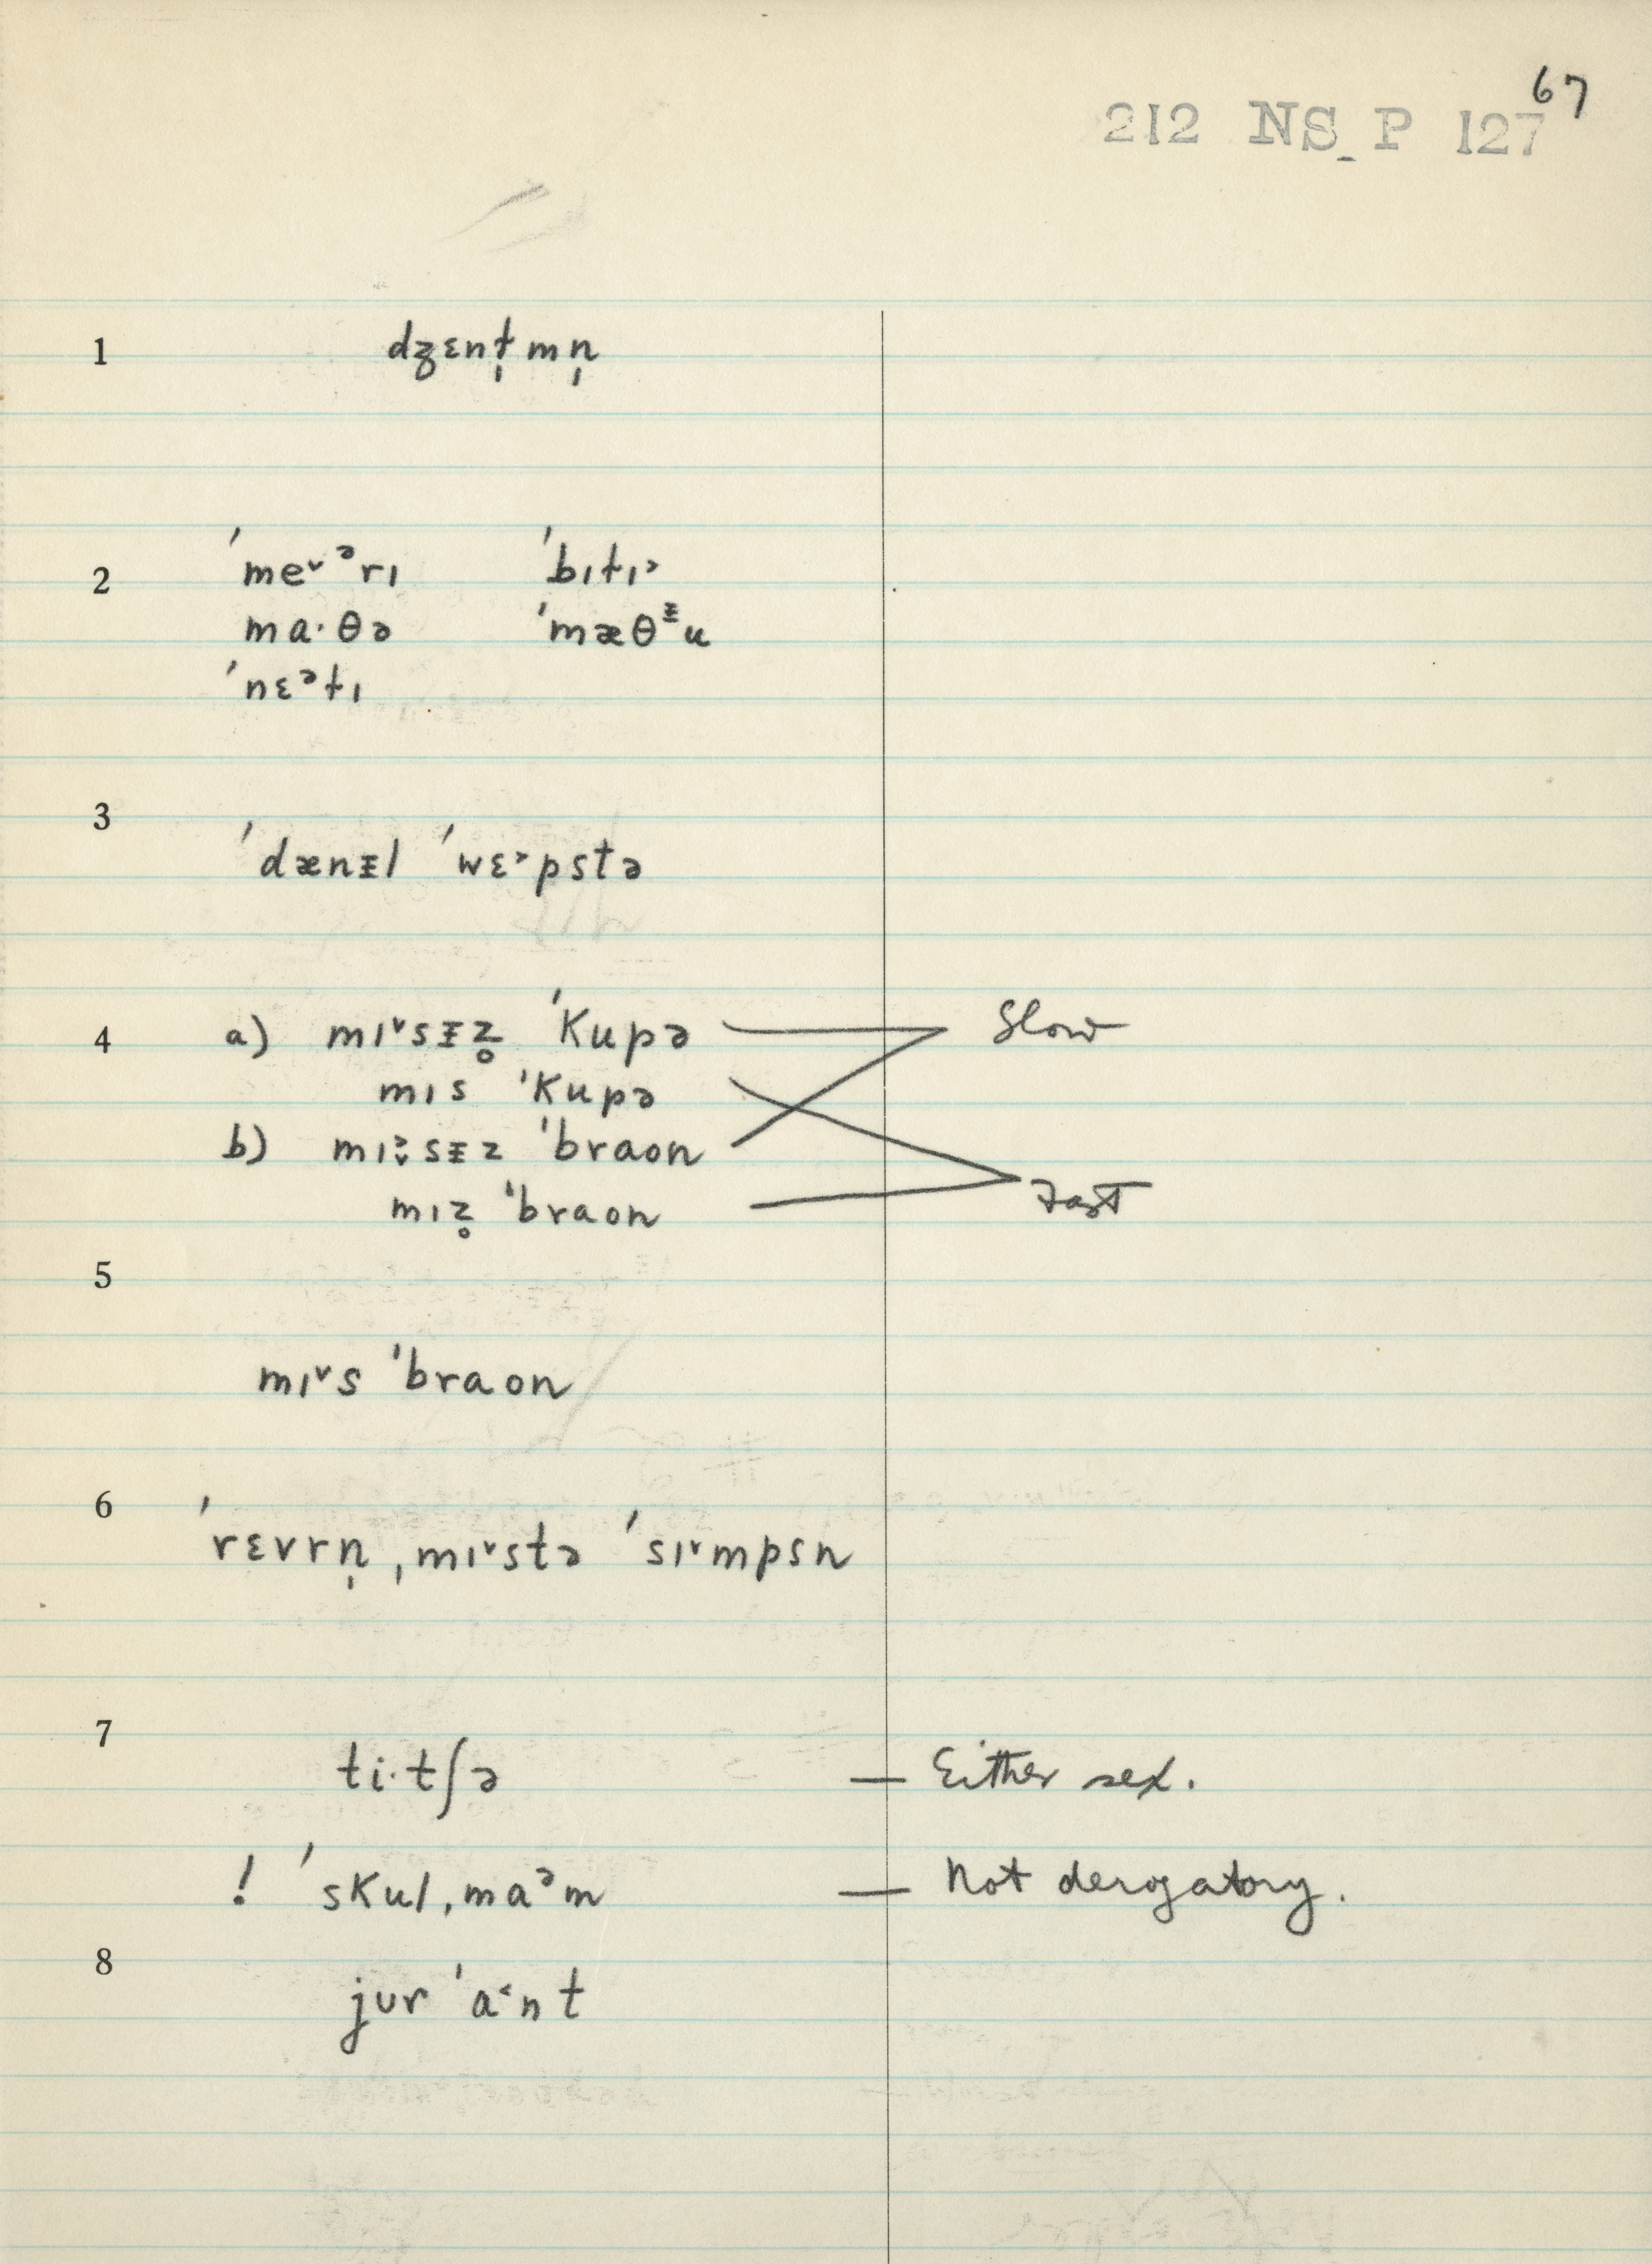 67
212 NS_P 127
1 dʒɛnt̩mn̩
2 ˈme˅ᵊrɪ ˈbɪtɪ˃
ma·θə ˈmæθᵻu
ˈnɛᵊtɪ
3 ˈdænᵻl ˈwɛ˃pstə
4 a) mɪ˅sᵻz̥ ˈkupə Slow
mɪs ˈkupə
b) mɪ˃˅sᵻz ˈbraon
mɪz̥ ˈbraon Fast
5
mɪ˅s ˈbraon
6 ˈrɛvrn̩ ˌmɪ˅stə ˈsɪ˅mpsn
7 ti·tʃə — Either sex.
! ˈskulˌmaᵊm — Not derogatory.
8 jʊr ˈa˂nt